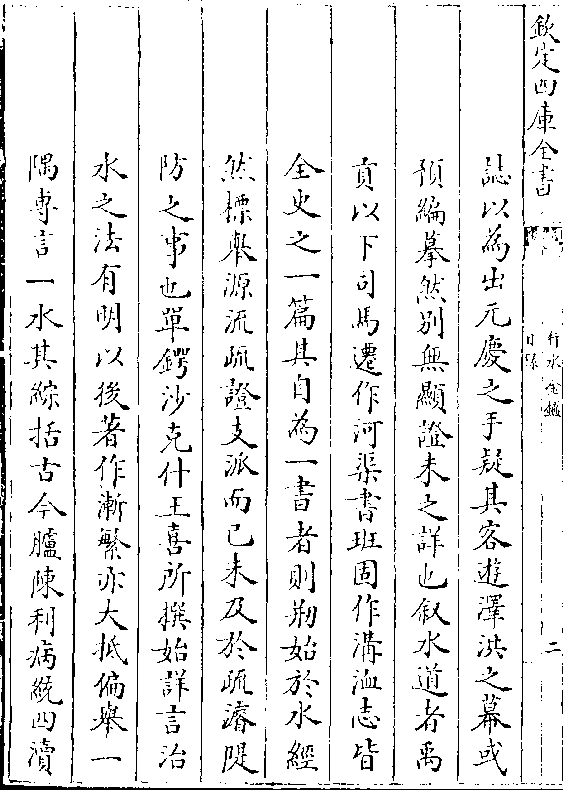 欽定四庫全書
行水金鑑
目錄
二
誌以為出元慶之手疑其客遊澤洪之幕或
預編摹然别無顯證未之詳也叙水道者禹
貢以下司馬遷作河渠書班固作溝洫志皆
全史之一篇其自為一書者則剏始於水經
然標舉源流疏證支派而已未及於疏濬隄
防之事也單鍔沙克什王喜所撰始詳言治
水之法有明以後著作漸繁亦大抵偏舉一
隅專言一水其綜括古今臚陳利病統四瀆